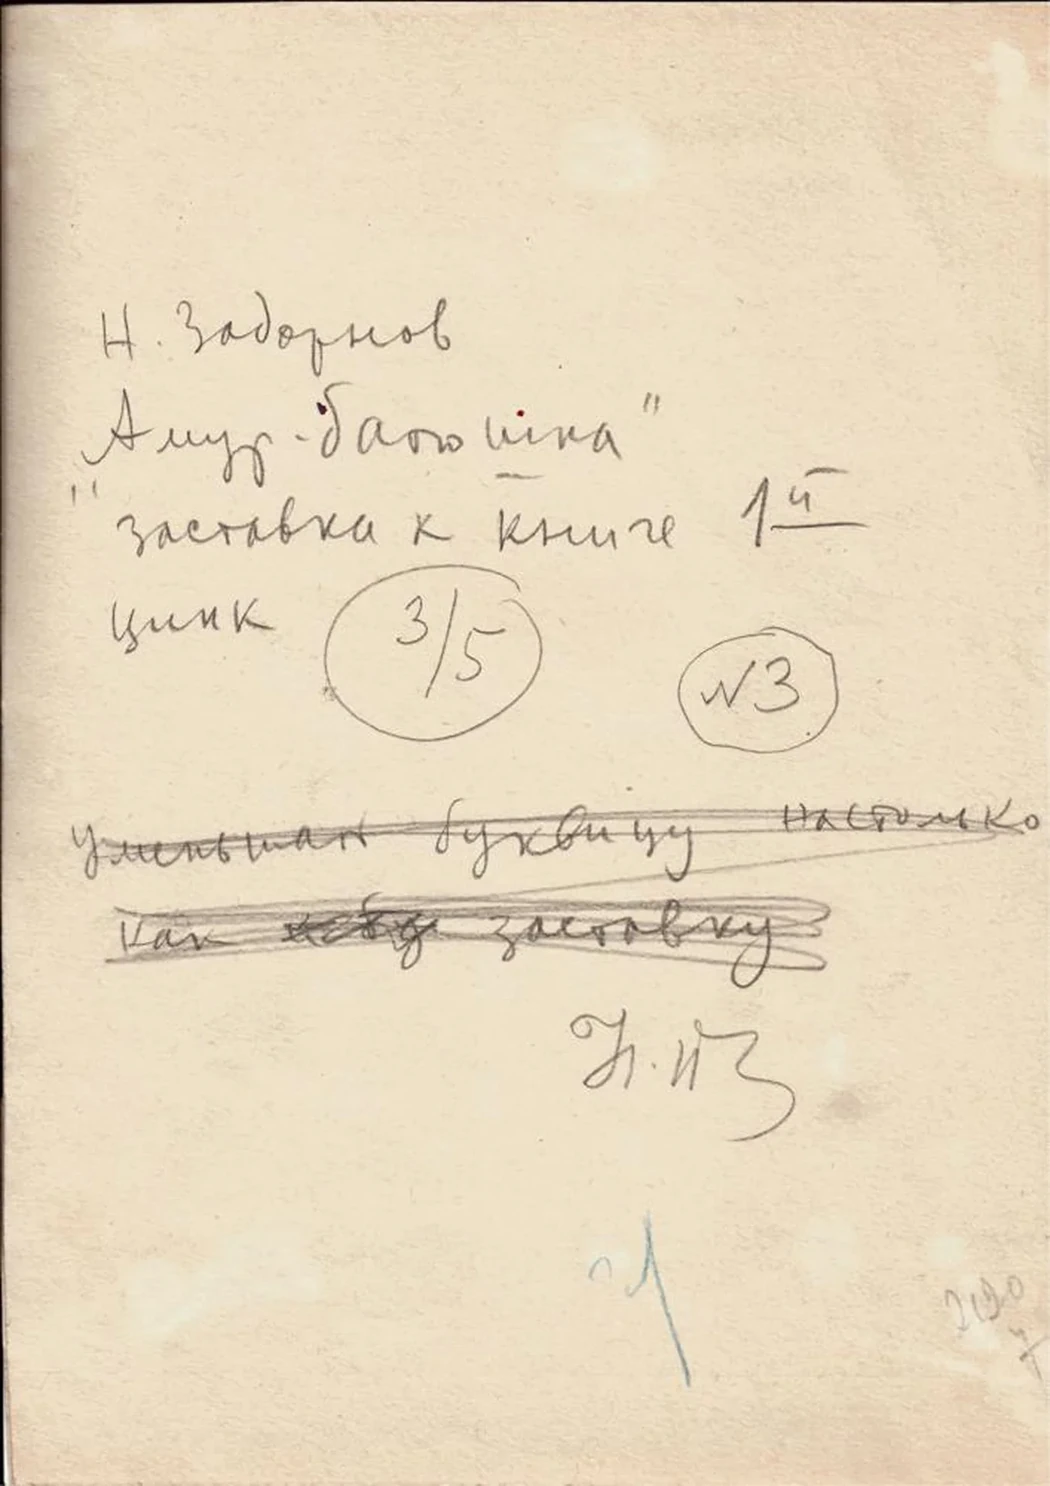 Н. Задорнов
„Амур-батюшка"
заставка к книге 1й
цинк 3/5 N3
Уменьшат буквицу настолько
как заставку